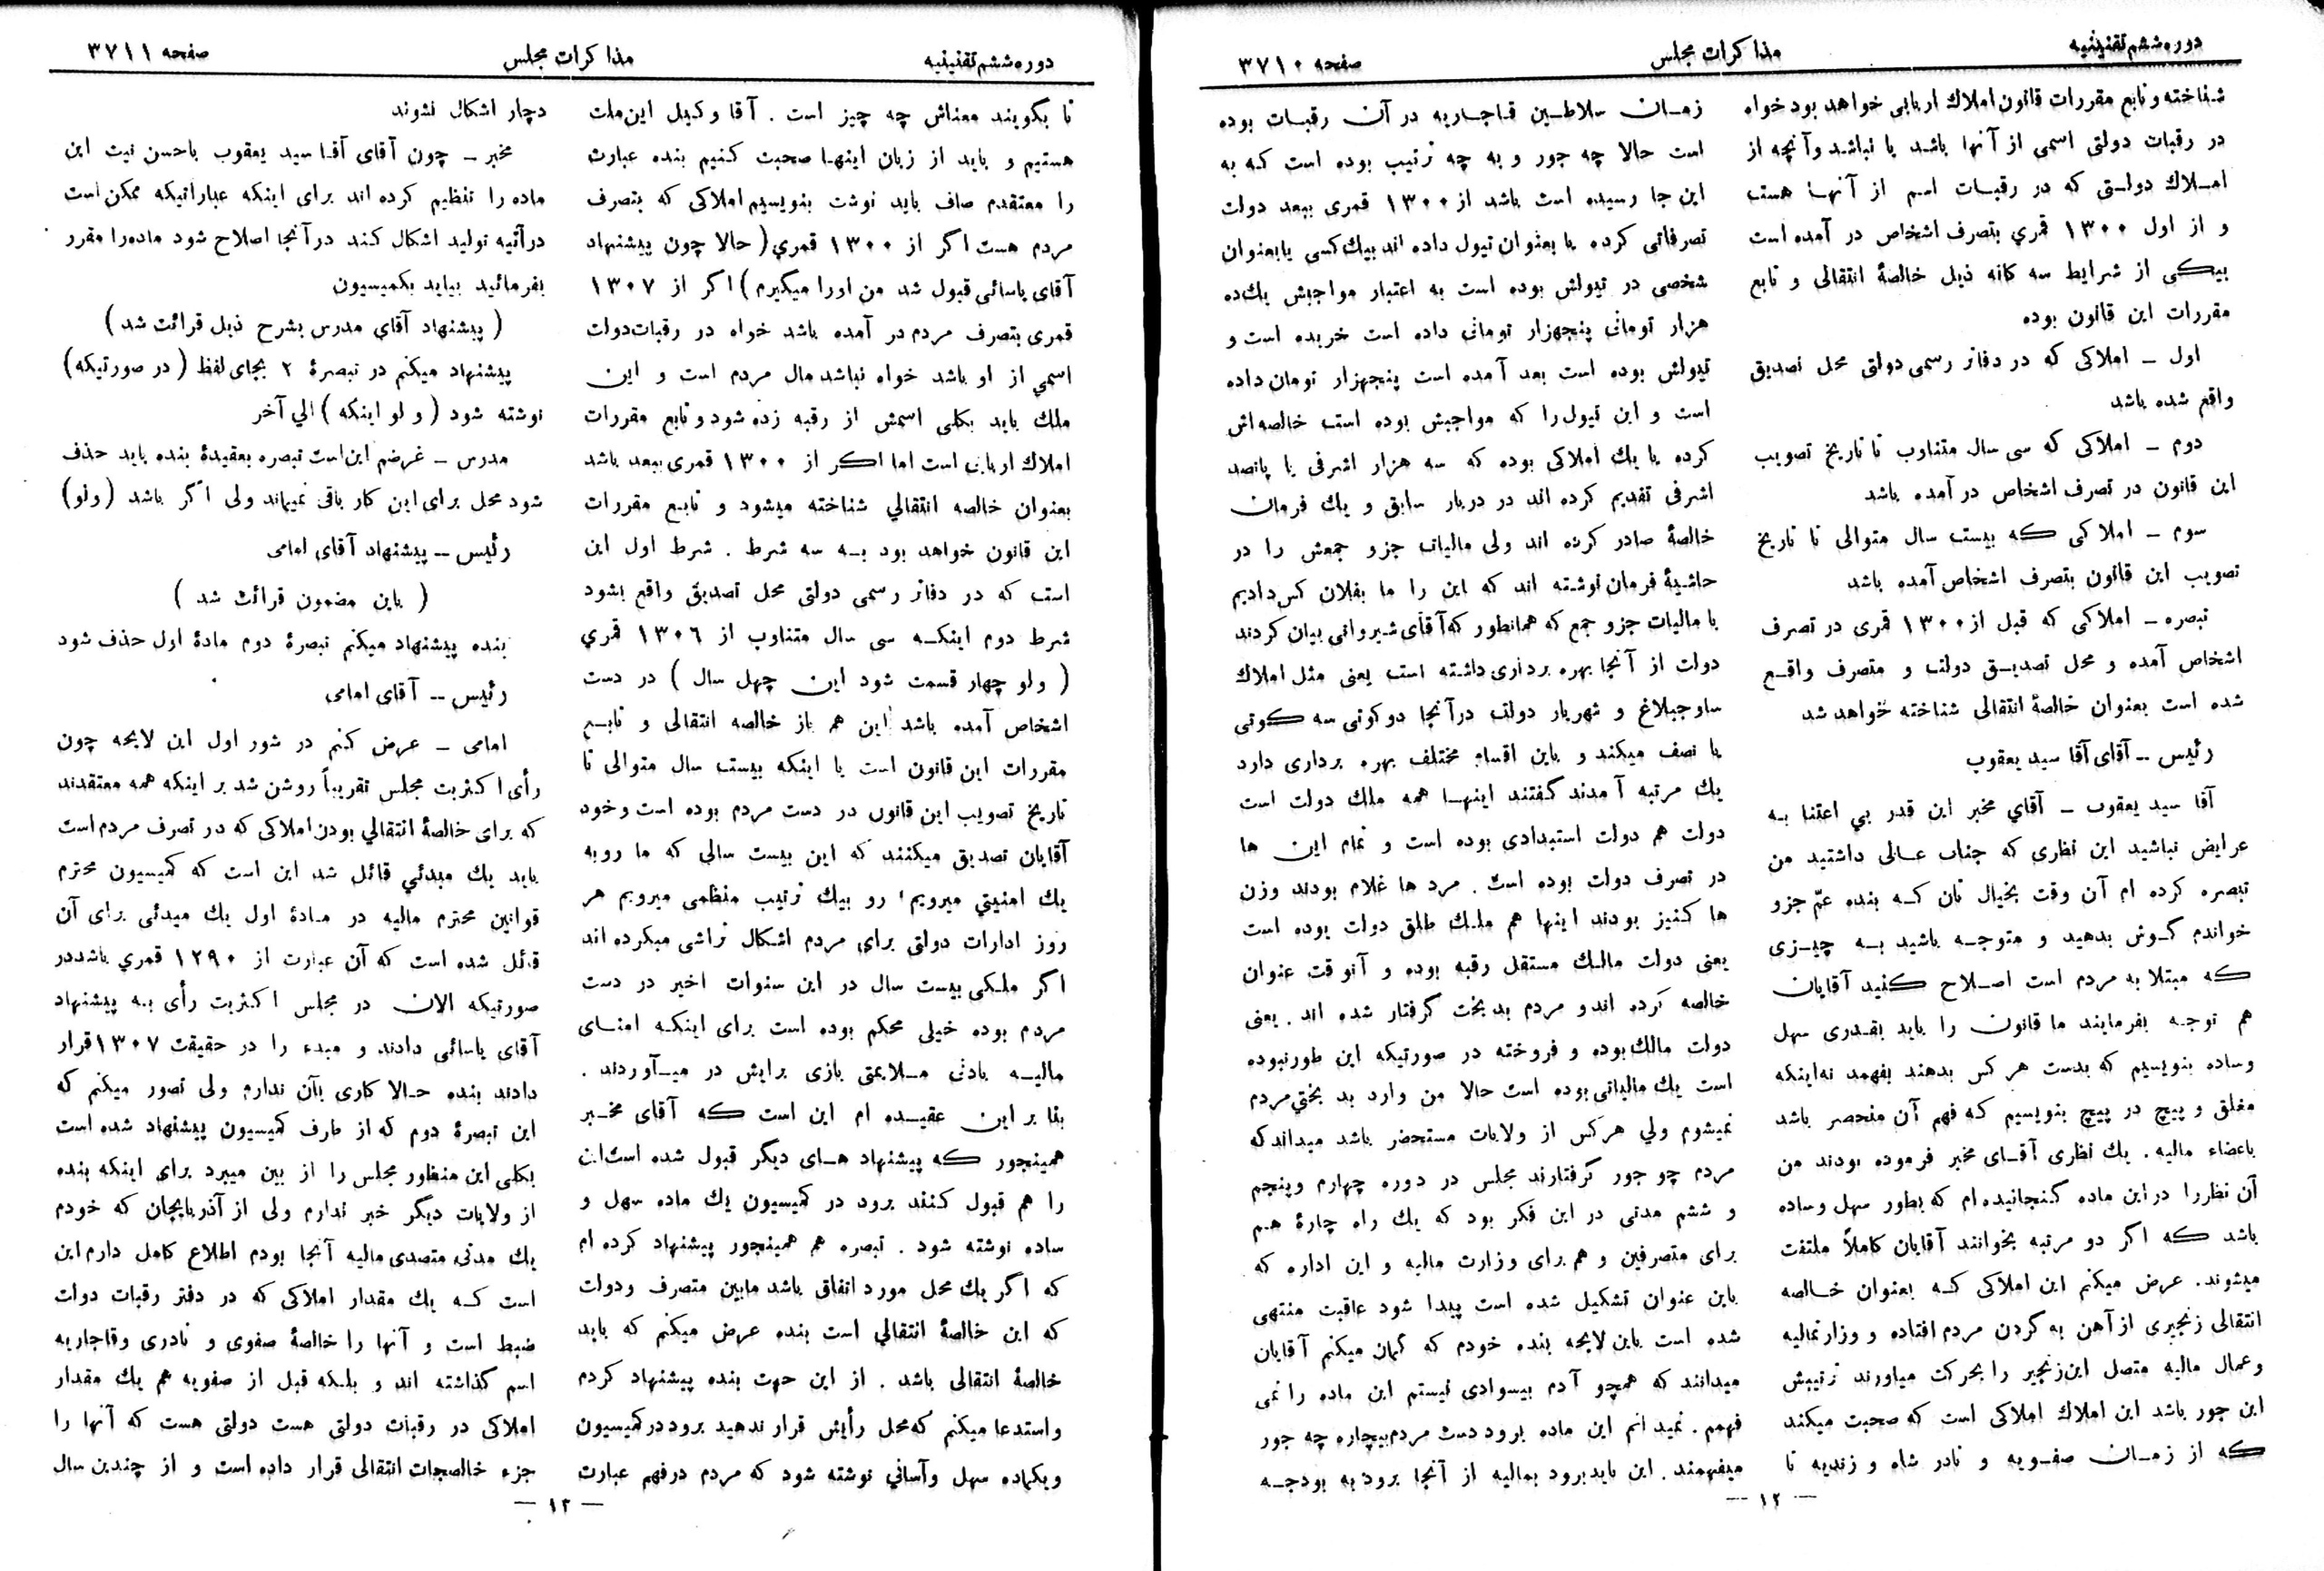 دوره ششم تقنینیه
مذاکرات مجلس
صفحه ۳۷۱۰
شناخته و تابع مقررات قانون املاک اربابی خواهد بود خواه
در رقبات دولتی اسمی از آنها باشد یا نباشد و آنچه از
املاک دولتی که در رقبات اسم از آنها هست
و از اول ۱۳۰۰ قمری بتصرف اشخاص در آمده است
بیکی از شرایط سه گانه ذیل خالصهٔ انتقالی و تابع
مقررات این قانون بوده
اول ـ املاکی که در دفاتر رسمی دولتی محل تصدیق
واقع شده باشد
دوم ـ املاکی که سی سال متناوب تا تاریخ تصویب
این قانون در تصرف اشخاص در آمده باشد
سوم ـ املاکی که بیست سال متوالی تا تاریخ
تصویب این قانون بتصرف اشخاص آمده باشد
تبصره ـ املاکی که قبل از ۱۳۰۰ قمری در تصرف
اشخاص آمده و محل تصدیق دولت و متصرف واقع
شده است بعنوان خالصهٔ انتقالی شناخته خواهد شد
رئیس ــ آقای آقا سید یعقوب
آقا سید یعقوب ـ آقای مخبر این قدر بی اعتنا به
عرایض نباشید این نظری که جناب عالی داشتید من
تبصره کرده ام آن وقت بخیال تان که بنده عمّ جزو
خواندم گوش بدهید و متوجه باشید به چیزی
که مبتلا به مردم است اصلاح کنید آقایان
هم توجه بفرمایند ما قانون را باید بقدری سهل
و ساده بنویسیم که بدست هر کس بدهند بفهمد نه اینکه
مغلق و پیچ در پیچ بنویسیم که فهم آن منحصر باشد
باعضاء مالیه . یک نظری آقای مخبر فرموده بودند من
آن نظر را در این ماده گنجانیده ام که بطور سهل و ساده
باشد که اگر دو مرتبه بخوانند آقایان کاملاً ملتفت
میشوند . عرض میکنم این املاکی که بعنوان خالصه
انتقالی زنجیری از آهن به گردن مردم افتاده و وزارتمالیه
و عمال مالیه متصل این زنجیر را بحرکت میاورند ترتیبش
این جور باشد این املاک املاکی است که صحبت میکند
که از زمان صفویه و نادر شاه و زندیه تا
زمان سلاطین قاجاریه در آن رقبات بوده
است حالا چه جور و به چه ترتیب بوده است که به
این جا رسیده است باشد از ۱۳۰۰ قمری ببعد دولت
تصرفاتی کرده یا بعنوان تیول داده اند بیک کسی یا بعنوان
شخصی در تیولش بوده است به اعتبار مواجبش یک ده
هزار تومانی پنجهزار تومانی داده است خریده است و
تیولش بوده است بعد آمده است پنجهزار تومان داده
است و این تیول را که مواجبش بوده است خالصه اش
کرده یا یک املاکی بوده که سه هزار اشرفی یا پانصد
اشرفی تقدیم کرده اند در دربار سابق و یک فرمان
خالصهٔ صادر کرده اند ولی مالیات جزو جمعش را در
حاشیهٔ فرمان نوشته اند که این را ما بفلان کس دادیم
با مالیات جزو جمع که همانطور که آقای شیروانی بیان کردند
دولت از آنجا بهره برداری داشته است یعنی مثل املاک
ساوجبلاغ و شهریار دولت در آنجا دو کوتی سه کوتی
یا نصف میکند و باین اقسام مختلف بهره برداری دارد
یک مرتبه آمدند گفتند اینها همه ملک دولت است
دولت هم دولت استبدادی بوده است و تمام این ها
در تصرف دولت بوده است . مرد ها غلام بودند وزن
ها کنیز بودند اینها هم ملک طلق دولت بوده است
یعنی دولت مالک مستقل رقبه بوده و آنوقت عنوان
خالصه کرده اند و مردم بدبخت گرفتار شده اند . یعنی
دولت مالک بوده و فروخته در صورتیکه این طور نبوده
است یک مالیاتی بوده است حالا من وارد بد بختی مردم
نمیشوم ولی هر کس از ولایات مستحضر باشد میداند که
مردم چو جور گرفتارند مجلس در دوره چهارم و پنجم
و ششم مدتی در این فکر بود که یک راه چارهٔ هم
برای متصرفین و هم برای وزارت مالیه و این اداره که
باین عنوان تشکیل شده است پیدا شود عاقبت منتهی
شده است باین لایحه بنده خودم که گمان میکنم آقایان
میدانند که همچو آدم بیسوادی نیستم این ماده را نمی
فهمم . نمیدانم این ماده برود دست مردم بیچاره چه جور
میفهمند . این باید برود بمالیه از آنجا برود به بودجه
— ۱۲ —
دوره ششم تقنینیه
مذاکرات مجلس
صفحه ۳۷۱۱
تا بگویند معناش چه چیز است . آقا وکیل این ملت
هستیم و باید از زبان اینها صحبت کنیم بنده عبارت
را معتقدم صاف باید نوشت بنویسیم املاکی که بتصرف
مردم هست اگر از ۱۳۰۰ قمری ( حالا چون پیشنهاد
آقای یاسائی قبول شد من اورا میگیرم ) اگر از ۱۳۰۷
قمری بتصرف مردم در آمده باشد خواه در رقبات دولت
اسمی از او باشد خواه نباشد مال مردم است و این
ملک باید بکلی اسمش از رقبه زده شود و تابع مقررات
املاک اربابی است اما اگر از ۱۳۰۰ قمری ببعد باشد
بعنوان خالصه انتقالی شناخته میشود و تابع مقررات
این قانون خواهد بود به سه شرط . شرط اول این
است که در دفاتر رسمی دولتی محل تصدیق واقع بشود
شرط دوم اینکه سی سال متناوب از ۱۳۰۶ قمری
( ولو چهار قسمت شود این چهل سال ) در دست
اشخاص آمده باشد این هم باز خالصه انتقالی و تابع
مقررات این قانون است یا اینکه بیست سال متوالی تا
تاریخ تصویب این قانون در دست مردم بوده است و خود
آقایان تصدیق میکنند که این بیست سالی که ما رو به
یک امنیتی میرویم ، رو بیک ترتیب منظمی میرویم هر
روز ادارات دولتی برای مردم اشکال تراشی میکرده اند
اگر ملکی بیست سال در این سنوات اخیر در دست
مردم بوده خیلی محکم بوده است برای اینکه امنای
مالیه بادنی ملایمتی بازی برایش در میآوردند .
بنا بر این عقیده ام این است که آقای مخبر
همینجور که پیشنهاد های دیگر قبول شده است این
را هم قبول کنند برود در کمیسیون یک ماده سهل و
ساده نوشته شود . تبصره هم همینجور پیشنهاد کرده ام
که اگر یک محل مورد اتفاق باشد مابین متصرف و دولت
که این خالصهٔ انتقالی است بنده عرض میکنم که باید
خالصهٔ انتقالی باشد . از این جهت بنده پیشنهاد کردم
و استدعا میکنم که محل رأیش قرار ندهید برود در کمیسیون
و یکماده سهل و آسانی نوشته شود که مردم در فهم عبارت
دچار اشکال نشوند
مخبر ـ چون آقای آقا سید یعقوب باحسن نیت این
ماده را تنظیم کرده اند برای اینکه عباراتیکه ممکن است
در آتیه تولید اشکال کند در آنجا اصلاح شود ماده را مقرر
بفرمائید بیاید بکمیسیون
( پیشنهاد آقای مدرس بشرح ذیل قرائت شد )
پیشنهاد میکنم در تبصرهٔ ۲ بجای لفظ ( در صورتیکه )
نوشته شود ( و لو اینکه ) الی آخر
مدرس ـ غرضم این است تبصره بعقیدهٔ بنده باید حذف
شود محل برای این کار باقی نمیماند ولی اگر باشد ( ولو )
رئیس ــ پیشنهاد آقای امامی
( باین مضمون قرائت شد )
بنده پیشنهاد میکنم تبصرهٔ دوم مادهٔ اول حذف شود
رئیس ــ آقای امامی
امامی ـ عرض کنم در شور اول این لایحه چون
رأی اکثریت مجلس تقریباً روشن شد بر اینکه همه معتقدند
که برای خالصهٔ انتقالی بودن املاکی که در تصرف مردم است
باید یک مبدئی قائل شد این است که کمیسیون محترم
قوانین محترم مالیه در مادهٔ اول یک مبدئی برای آن
قائل شده است که آن عبارت از ۱۲۹۰ قمری باشد در
صورتیکه الان در مجلس اکثریت رأی به پیشنهاد
آقای یاسائی دادند و مبدء را در حقیقت ۱۳۰۷ قرار
دادند بنده حالا کاری بآن ندارم ولی تصور میکنم که
این تبصرهٔ دوم که از طرف کمیسیون پیشنهاد شده است
بکلی این منظور مجلس را از بین میبرد برای اینکه بنده
از ولایات دیگر خبر ندارم ولی از آذربایجان که خودم
یک مدتی متصدی مالیه آنجا بودم اطلاع کامل دارم این
است که یک مقدار املاکی که در دفتر رقبات دولت
ضبط است و آنها را خالصهٔ صفوی و نادری و قاجاریه
اسم گذاشته اند و بلکه قبل از صفویه هم یک مقدار
املاکی در رقبات دولتی هست دولتی هست که آنها را
جزء خالصجات انتقالی قرار داده است و از چندین سال
— ۱۳ —